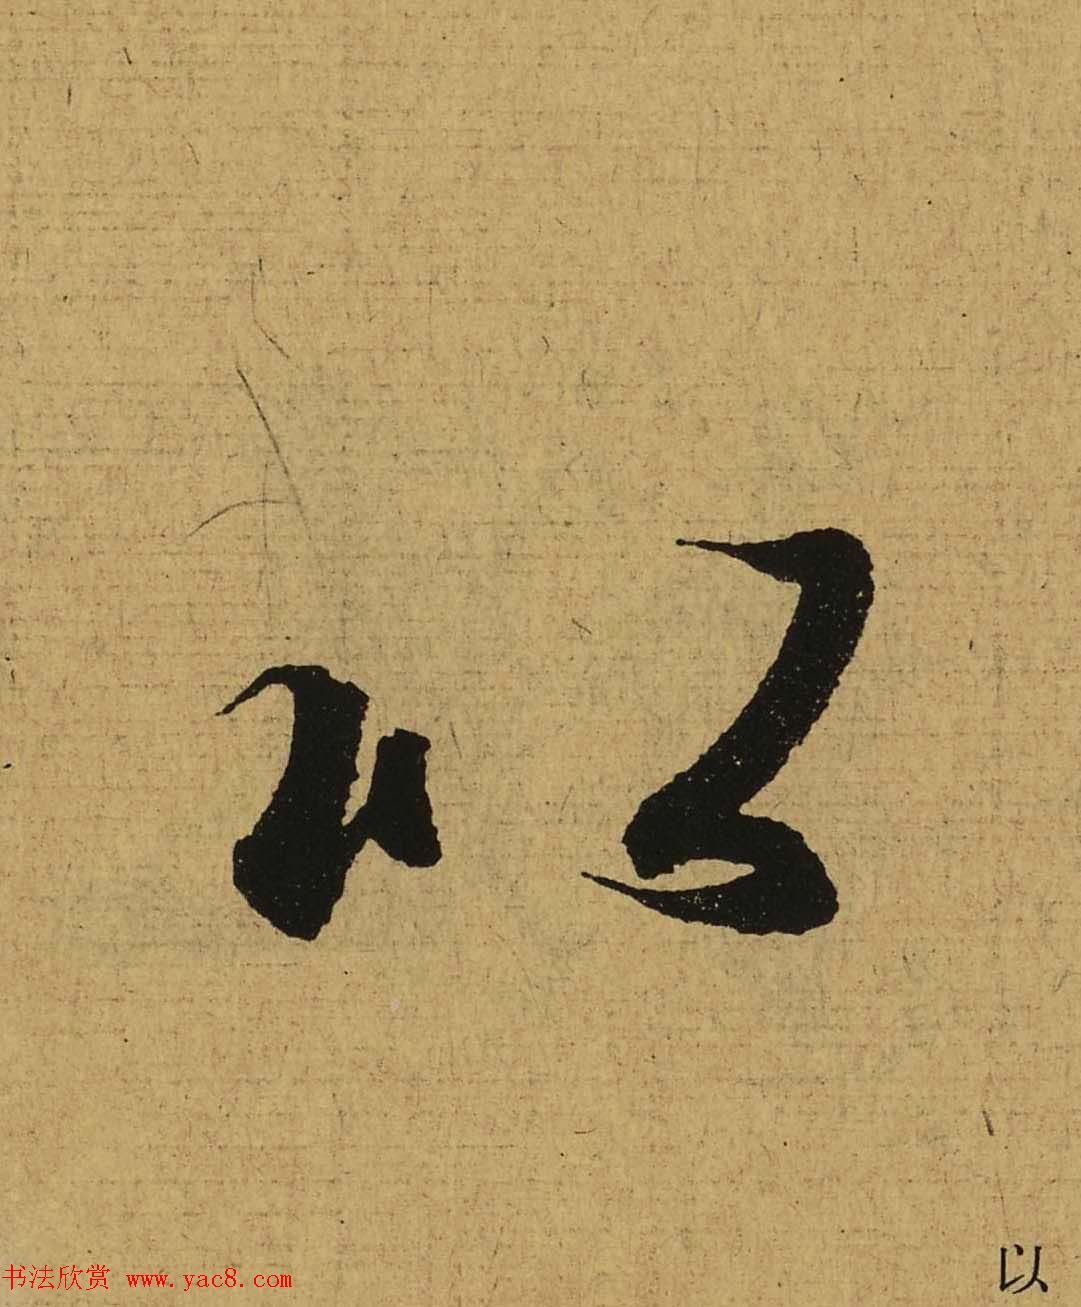 以
以
书法欣赏 www.yac8.com